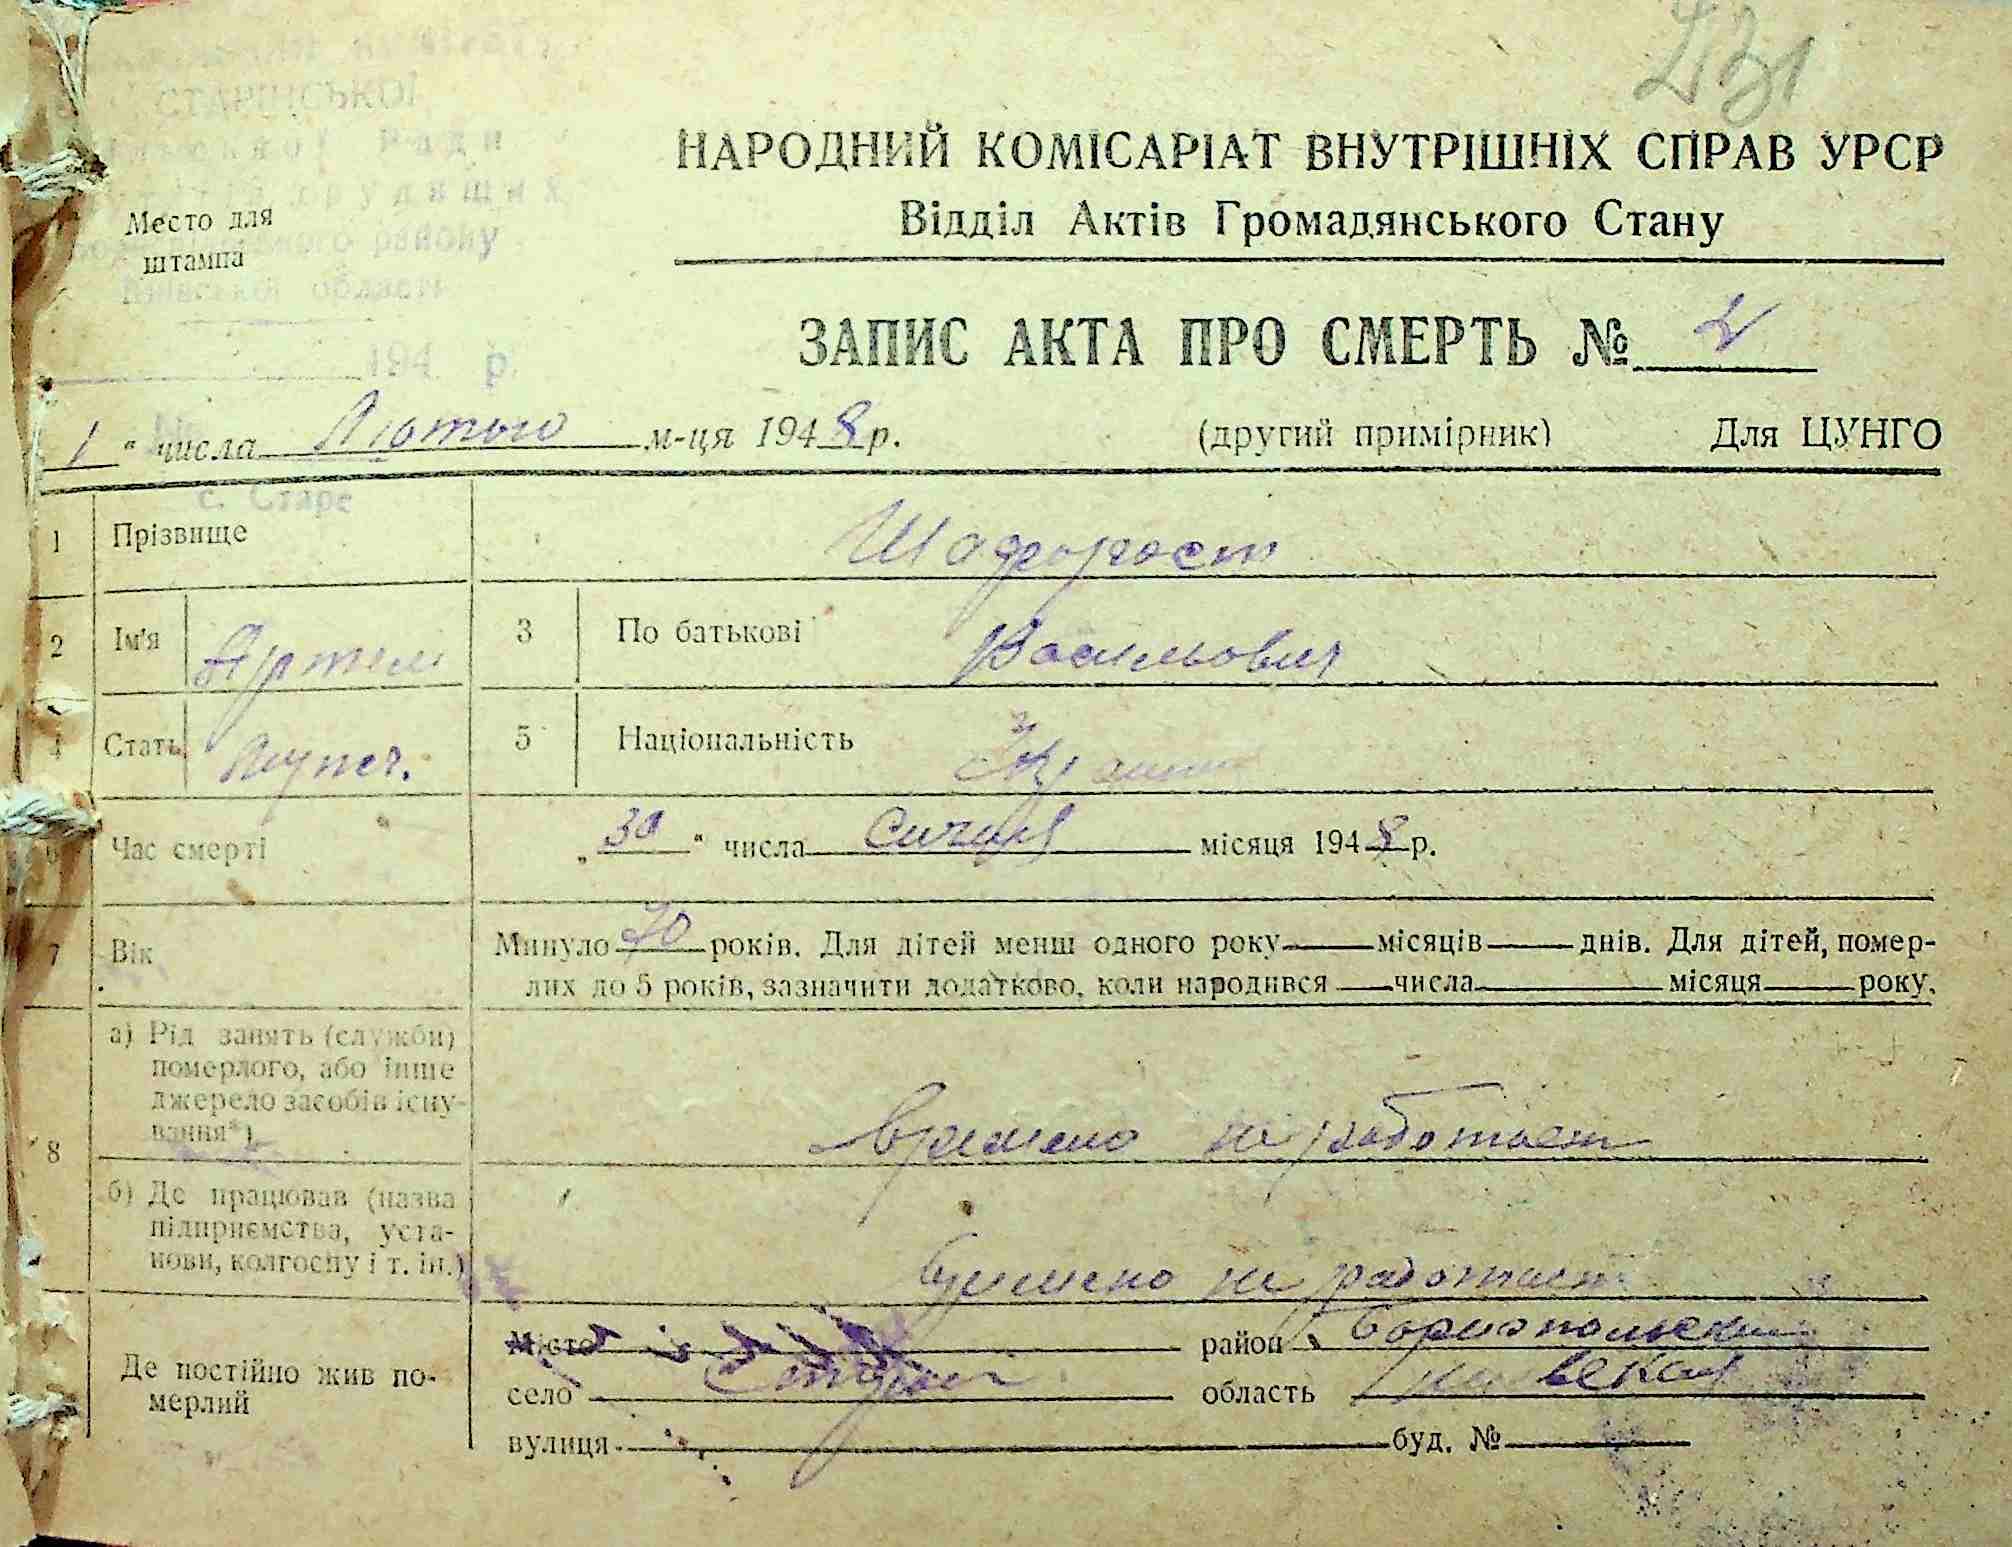 231
СТАРІНСЬКОЇ
Ради
району
Київської області
194 р.
с. Старе
Место для
штампа
НАРОДНИЙ КОМІСАРІАТ ВНУТРІШНІХ СПРАВ УРСР
Відділ Актів Громадянського Стану
ЗАПИС АКТА ПРО СМЕРТЬ № 2
1 " числа Лютого м-ця 1948 р. (другий примірник) Для ЦУНГО
1 Прізвище Шафорост
2 Ім'я Артем 3 По батькові Васильович
4 Стать муж. 5 Національність
6 Час смерті „30" числа Січня місяця 1948 р.
7 Вік Минуло 70 років. Для дітей менш одного року місяців днів. Для дітей, помер-
лих до 5 років, зазначити додатково, коли народився числа місяця року.
8 а) Рід занять (служби)
померлого, або інше
джерело засобів існу-
вання*)
времено не работает
б) Де працював (назва
підприємства, уста-
нови, колгоспу і т. ін.)
времено не работает
Де постійно жив по-
мерлий
місто район Бориспольский
село Старое область Киевская
вулиця буд. №